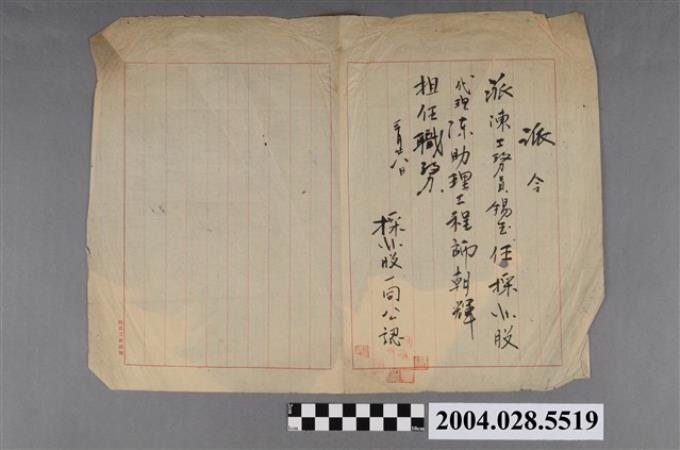 派令
派陳工務員錫玉任採水股
代理陳助理工程師朝輝
担任職務
三月廿八日
採水股一同公認
2004.028.5519